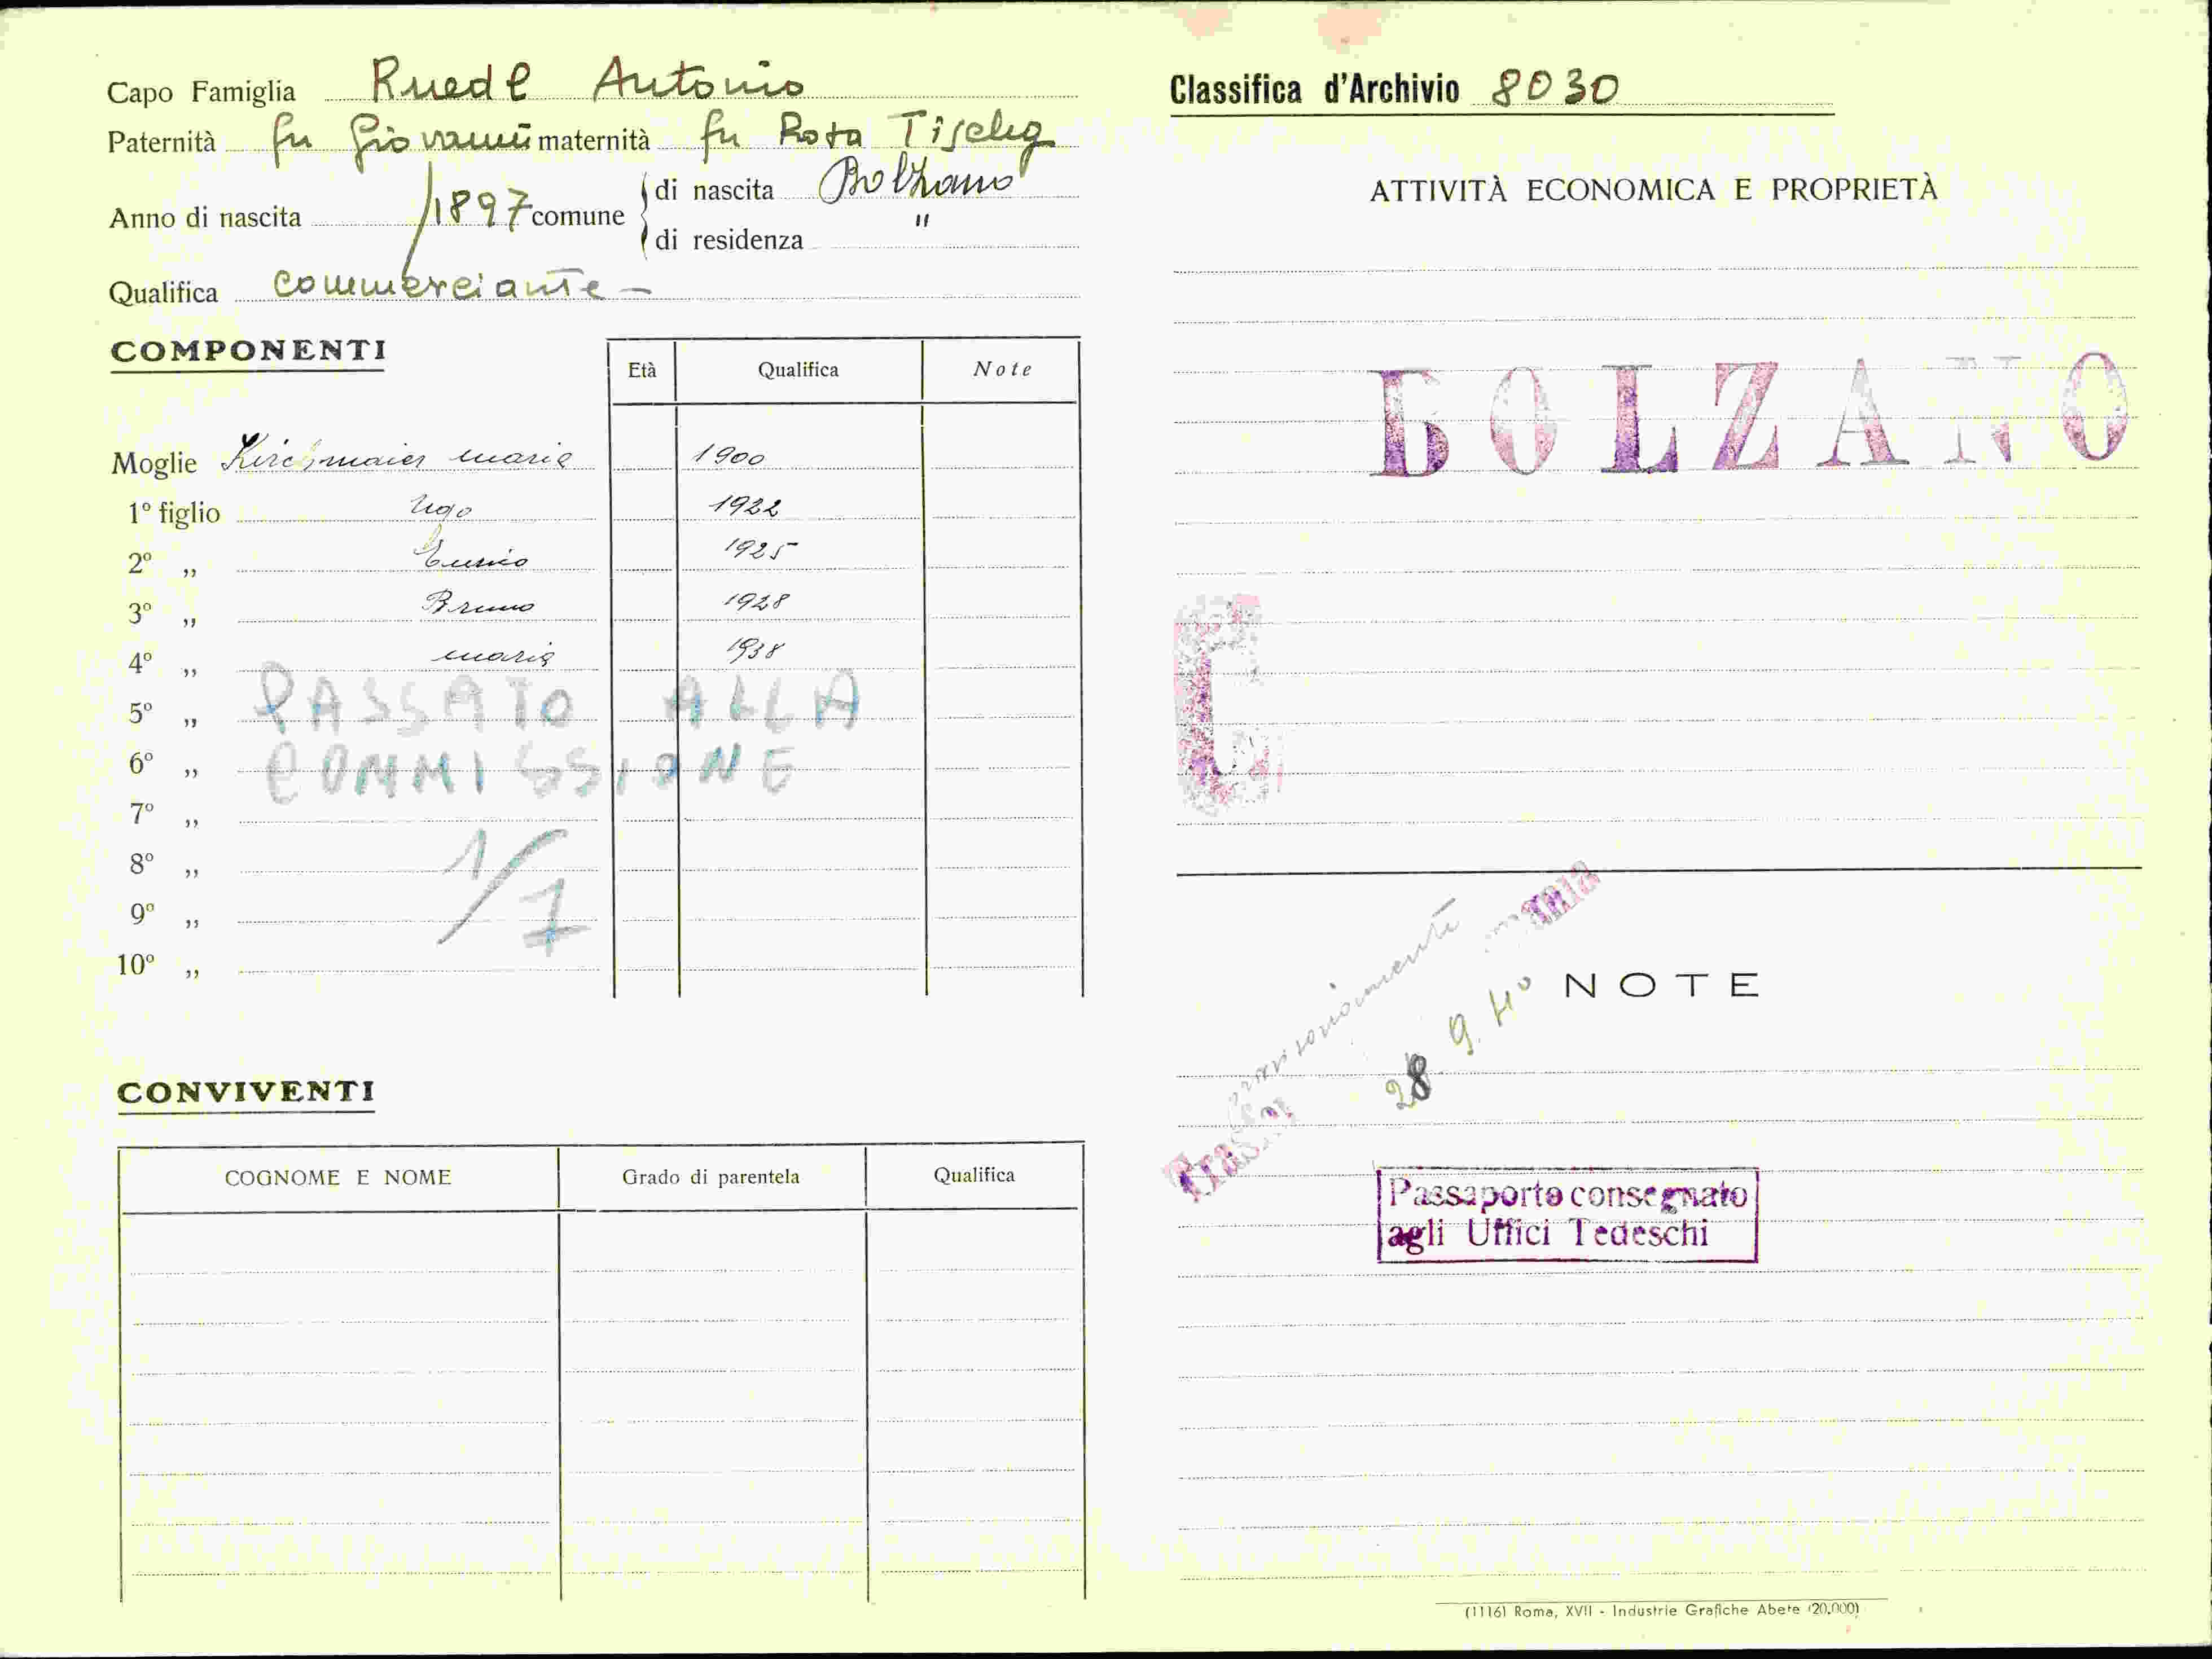 Capo Famiglia Ruedl Antonio
Paternità fu Giovanni maternità fu Rosa Tischg
Anno di nascita 1897 comune di nascita Bolzano
di residenza "
Qualifica commerciante -
COMPONENTI
Età Qualifica Note
Moglie Kirchmaier Maria 1900
1° figlio Ugo 1922
2° „ Enrico 1925
3° „ Bruno 1928
4° „ Maria 1938
5° „ PASSATO ALLA
6° „ COMMISSIONE
7° „
8° „ 1/7
9° „
10° „
CONVIVENTI
COGNOME E NOME Grado di parentela Qualifica
Classifica d'Archivio 8030
ATTIVITÀ ECONOMICA E PROPRIETÀ
BOLZANO
NOTE
provisoriamente
28 9. 40
Passaporto consegnato
agli Uffici Tedeschi
(1116) Roma, XVII - Industrie Grafiche Abete (20.000)